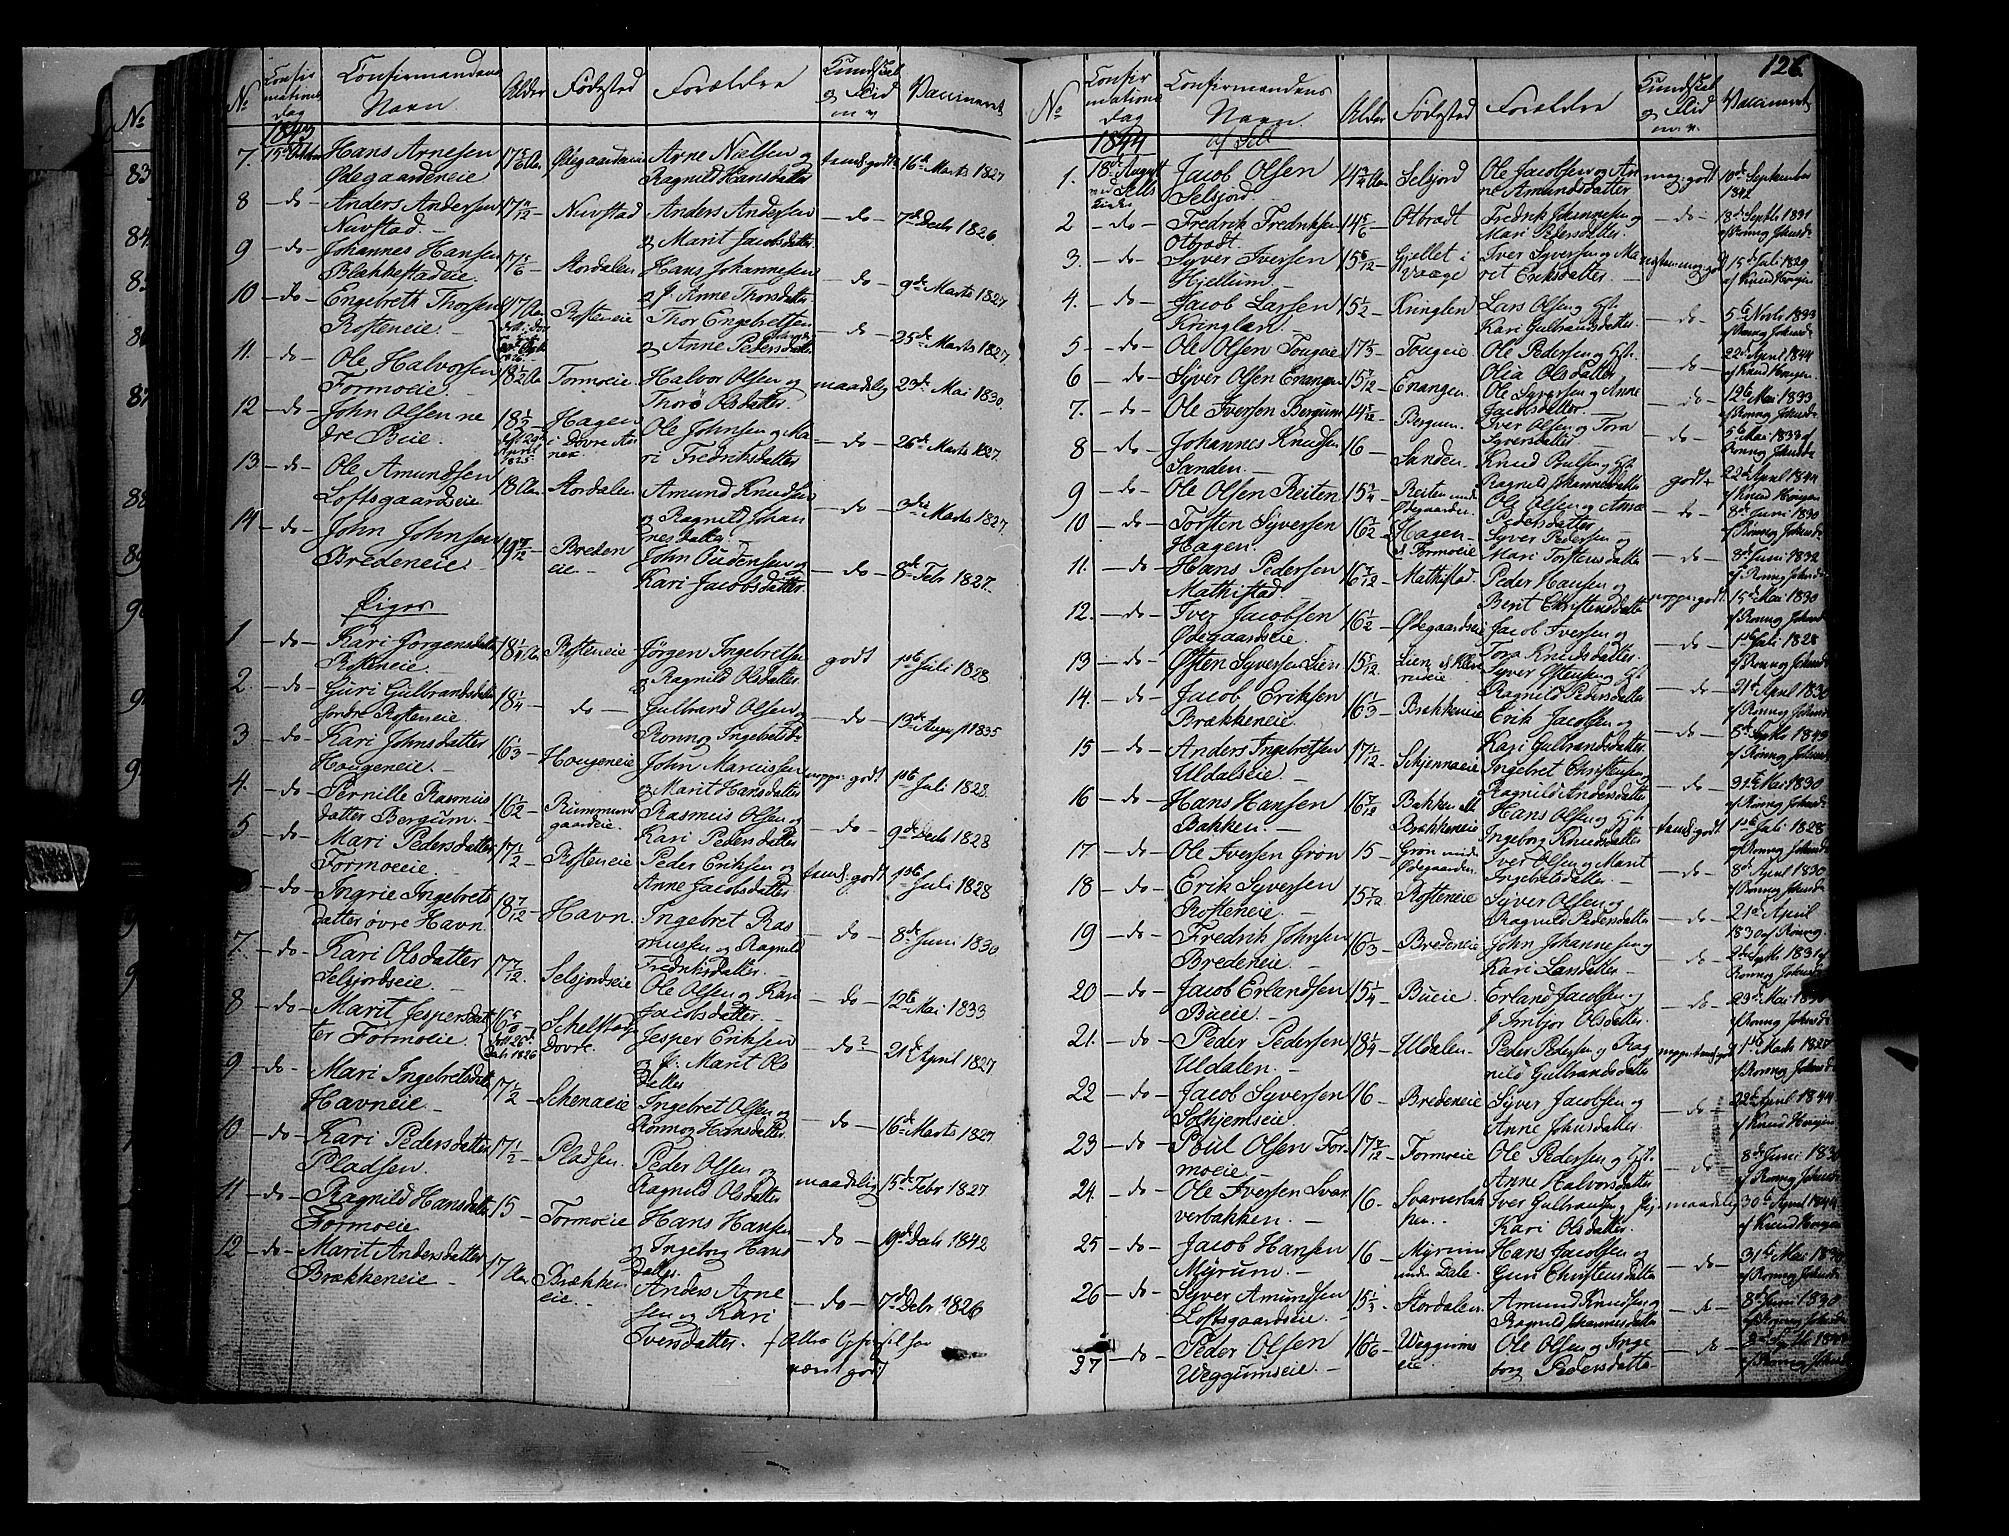 No Confirmations dag Confirmandens Navn Alder Fødested Forældre Kundskab og Flid m. v. Vaccineret
1843
7. 15de Hans Arnesen Ødegaardeneie Ødegaardeneie Arne Nielsen og Ragnild Hansdatter temel: godt 16de Marts 1827
8 - do - Anders Andersen Nuvstad 17 Nuvstad Anders Andersen og Marit Jacobsdatter - do - 7de Decb 1826
9 - do - Johannes Hansen Blekkestadeie 17 5/6 Stordalen Hans Johannesen og J. Anne Thorsdatter - do - 9de Marts 1827
10 - do - Engebreth Thorsen Rosteneie 17 Aar Rosteneie Thor Engebretsen og Anne Pedersdatter - do - 25de Marts 1827
11. - do - Ole Halvorsen Formoeie 18 1/2 Formoeie Halvor Olsen og Thorø Olsdatter maadelig 23de Mai 1830
12 - do - John Olsen nedre Bue 18 1/2 Hagen i Dovre Annex Ole Johnsen og Mari Fredriksdatter - do - 26de Marts 1827
13 - do - Ole Amundsen Loftsgaardseie 18 Aar Stordalen Amund Knudsen og Ragnild Johannesdatter - do - 9de Marts 1827
14 - do - John Johnsen Bredeneie 19 Bredeneie John Oudensen og Kari Jacobsdatter - do - 8de Febr 1827
Piger
1 - do - Kari Jørgensdatter Rosteneie 18 1/4 Rosteneie Jørgen Ingebretsen og Ragnild Olsdatter godt 1ste Juli 1828
2. - do - Guri Gulbrandsdatter søndre Rosteneie 18 1/4 - do - Gulbrand Olsen og Ronnog Ingebretsd. - do - 13de August 1835
3 - do - Kari Johnsdatter Hougeneie 16 1/3 Hougeneie John Marcussen og Marit Hansdatter noppe: godt 1ste Juli 1828
4. - do - Pernille Rasmusdatter Bergum 16 1/2 Rummumgaardeie Rasmus Olsen og Kari Pedersdatter - do - 9de Decb 1828
5 - do - Mari Pedersdatter Formoeie 17 1/2 Rosteneie Peder Eriksen og Anne Jacobsdatter temel: godt 1ste Juli 1828
- do - Ingrie Ingebretsdatter øvre Havn 18 7/12 Havn Ingebret Rasmussen og Ragnild Fredriksdatter - do - 8de Juni 1830
7. - do - Kari Olsdatter Selsjordseie 17 7/12 Selsjordseie Ole Olsen og Kari Jacobsdatter - do - 12te Mai 1833
8 - do - Marit Jespersdatter Formoeie 16 5/6 Dovre Jesper Eriksen og J. Marit Olsdatter - do - 21de April 1827
9 - do - Mari Ingebretsdatter Havneie 17 1/2 Schenaeie Ingebret Olsen og Ronnog Hansdatter - do - 16de Marts 1827
10 - do - Kari Pedersdatter Pladsen 17 1/2 Pladsen Peder Olsen og Ragnild Olsdatter maadelig 15de Febr 1827
11 - do - Ragnild Hansdatter Formoeie 15 Formoeie Hans Hansen og Ingeborg Hansdatter - do - 19de Decb 1842
12 - do - Marit Andersdatter Brækkeneie 17 Aar Brækkeneie Anders Arnesen og Kari Iversdatter - do - 7de Debr 1826
126
No Confirmations dag Confirmandens Navn Alder Fødested Forældre Kundskab og Flid m. v. Vaccineret
1844 af Sell
1. 18de August ved Sells Kirke Jacob Olsen Selsjord 14 3/4 Selsjord Ole Jacobsen og Anne Amundsdatter meg: godt 10de September 1842
2 - do - Fredrik Fredriksen Otbradt 14 5/6 Otbradt Fredrik Johannesen og Mari Pedersdatter - do - 18de Septb 1831 af Ronnog Johnsd.
3. - do - Syver Iversen Hjellum 15 Gjellet i Vaage Iver Syversen og Marit Eriksdatter 15de Juli 1829 af Knud Horgen
4. - do - Jacob Larsen Kringlen 15 1/2 Kringlen Lars Olsen og Hst. Kari Gulbrandsdatter - do - 5te Novb 1833 af Ronnog Johnsd.
5 - do - Ole Olsen Tougeie 17 Tougeie Ole Pedersen og Hst. Olia Olsdatter - do - 22de April 1844 af Knud Horgen
6 - do - Syver Olsen Enangen 15 7/12 Enangen Ole Syversen og Anne Jacobsdatter - do - 12te Mai 1833 af Ronnog Johnsd.
7. - do - Ole Iversen Bergum 14 Bergum Iver Olsen og Tora Syversdatter - do - 5te Mai 1833 af Ronnog Johnsd
8 - do - Johannes Knudsen Sanden 16 Sanden Knud Poulsen og Hst. Ragnild Johannesdatter godt 22de April 1844 af Knud Horgen
9 - do - Ole Olsen Reiten 15 3/4 Reiten under Ødegaarden Ole Olsen og Anne Pedersdatter - do - 8de Juni 1830 af Ronnog Johnsd
10 - do - Torsten Syversen Hagen 16 1/2 Hagen Formoeie Syver Pedersen og Mari Torstensdatter - do - 8de Juni 1832 af Ronnog Johnsd
11. - do - Hans Pedersen Mathistad 16 7/12 Mathistad Peder Hansen og Berit Christensdatter noppe: godt 15de Mai 1830 af Ronnog Johnsd
12. - do - Iver Jacobsen Ødegaardseie 16 1/2 Ødegaardseie Jacob Iversen og Tora Knudsdatter - do - 1ste Juli 1828 af Ronnog Johnsd
13 - do - Østen Syversen Lien 15 5/12 Lien Syver Østensen og Hst. Ragnild Pedersdatter - do - 21de April 1830 af Ronnog Johnsd
14. - do - Jacob Eriksen Brækkeneie 16 1/3 Brækkeneie Erik Jacobsen og Kari Gulbrandsdatter - do - 8de Septb 1843 af Ronnog Johnsd
15 - do - Anders Ingebretsen Uldalseie 17 1/12 Schjennaeie Ingebret Christensen og Ragnild Andersdatter - do - 31te Mai 1830 af Ronnog Johnsd
16 - do - Hans Hansen Bakken 16 7/12 Bakken Brækkeneie Hans Olsen og Hst. Ingeborg Knudsdatter temel: godt 1ste Juli 1828 af Ronnog Johnsd
17 - do - Ole Iversen Grøn 15 Grøn under Ødegaarden Iver Olsen og Marit Ingebretsdatter - do - 8de April 1830 af Ronnog Johnsd
18 - do - Erik Syversen Rosteneie 15 7/12 Rosteneie Syver Olsen og Ragnild Pedersdatter - do - 21de April 1830 af Ronnog
19 - do - Fredrik Johnsen Bredeneie 16 1/3 Bredeneie John Johannesen og Kari Larsdatter - do - 2de Septb 1831 af Ronnog Johnsd
20 - do - Jacob Erlandsen Bueie 15 1/4 Bueie Erland Jacobsen og J. Imbjør Olsdatter - do - 23de Mai 1830 af Ronnog Johnsd
21. - do - Peder Pedersen Uldalen 18 1/4 Uldalen Peder Pedersen og Ragnild Gulbrandsdatter noppe: temel: godt 1ste Marts 1827 af Ronnog Johnsd
22 - do - Jacob Syversen Solhjemseie 16 Bredeneie Syver Jacobsen og Anne Johnsdatter - do - 22de April 1844 af Knud Horgen
23 - do - Poul Olsen Formoeie 17 7/12 Formoeie Ole Pedersen og Hst. Anne Halvorsdatter - do - 8de Juni 1830 af Ronnog Johnsd
24. - do - Ole Iversen Svarverbakken 16 Svarverbakken Iver Gulbrandsen og Kari Olsdatter maadelig 30te April 1844 af Knud Horgen
25 - do - Jacob Hansen Myrum 16 Myrum under Dale Hans Jacobsen og Guri Christensdatter - do - 31te Mai 1830 af Ronnog Johnsd
26 - do - Syver Amundsen Loftsgaardseie 15 1/3 Stordalen Amund Knudsen og Ragnild Johannesdatter - do - 8de Juni 1830 af Ronnog Johnsd
27 - do - Peder Olsen Weggumseie 16 1/6 Weggumseie Ole Olsen og Ingeborg Pedersdatter - do - af Ronnog Johnsd